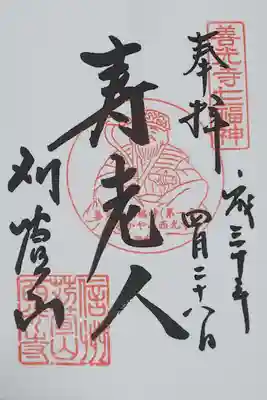 善光寺七福神
奉拝
平成三十年
四月二十八日
寿老人
刈萱山
信州
苅萱山
西光寺